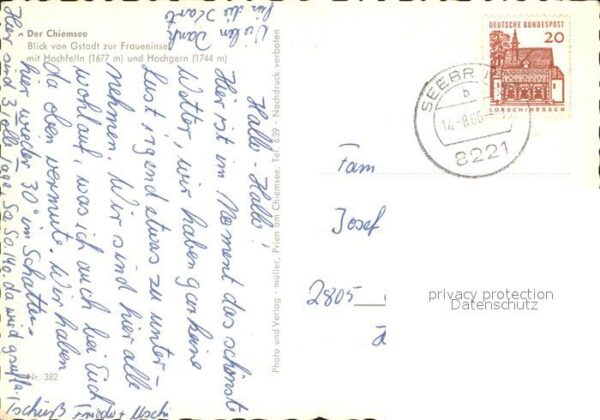 Der Chiemsee
Blick von Gstadt zur Fraueninsel
mit Hochfelln (1677 m) und Hochgern (1744 m)
Vielen Dank
für die Karte
Hallo - Hallo!
Hier ist im Moment das schönste
Wetter, wir haben gar keine
Lust irgend etwas zu unter-
nehmen. Wir sind hier alle
wohlauf, was ich auch bei Euch
da oben vermute. Wir haben
hier wieder 30° im Schatten.
Hier sind 3 tolle Tage Sa. So. Mo. da wird
Tschüß
Nr. 382
Photo und Verlag - müller, Prien am Chiemsee, Tel 639 · Nachdruck verboten
DEUTSCHE BUNDESPOST
20
LORSCH/HESSEN
SEEBRU
b
14.-8.66
8221
Fam
Josef
2805
privacy protection
Datenschutz